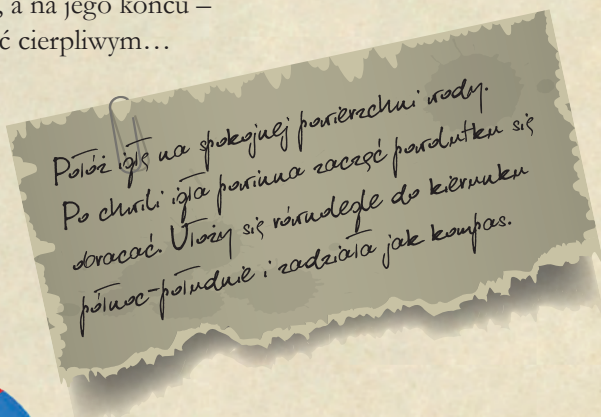 , a na jego końcu –
ć cierpliwym…
Połóż igłę na spokojnej powierzchni wody.
Po chwili igła powinna zacząć powolutku się
obracać. Ułoży się równolegle do kierunku
północ-południe i zadziała jak kompas.